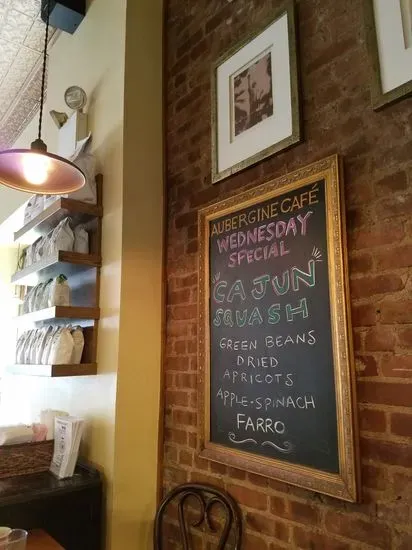 AUBERGINE CAFÉ
WEDNESDAY
SPECIAL
CAJUN
SQUASH
GREEN BEANS
DRIED
APRICOTS
APPLE-SPINACH
FARRO